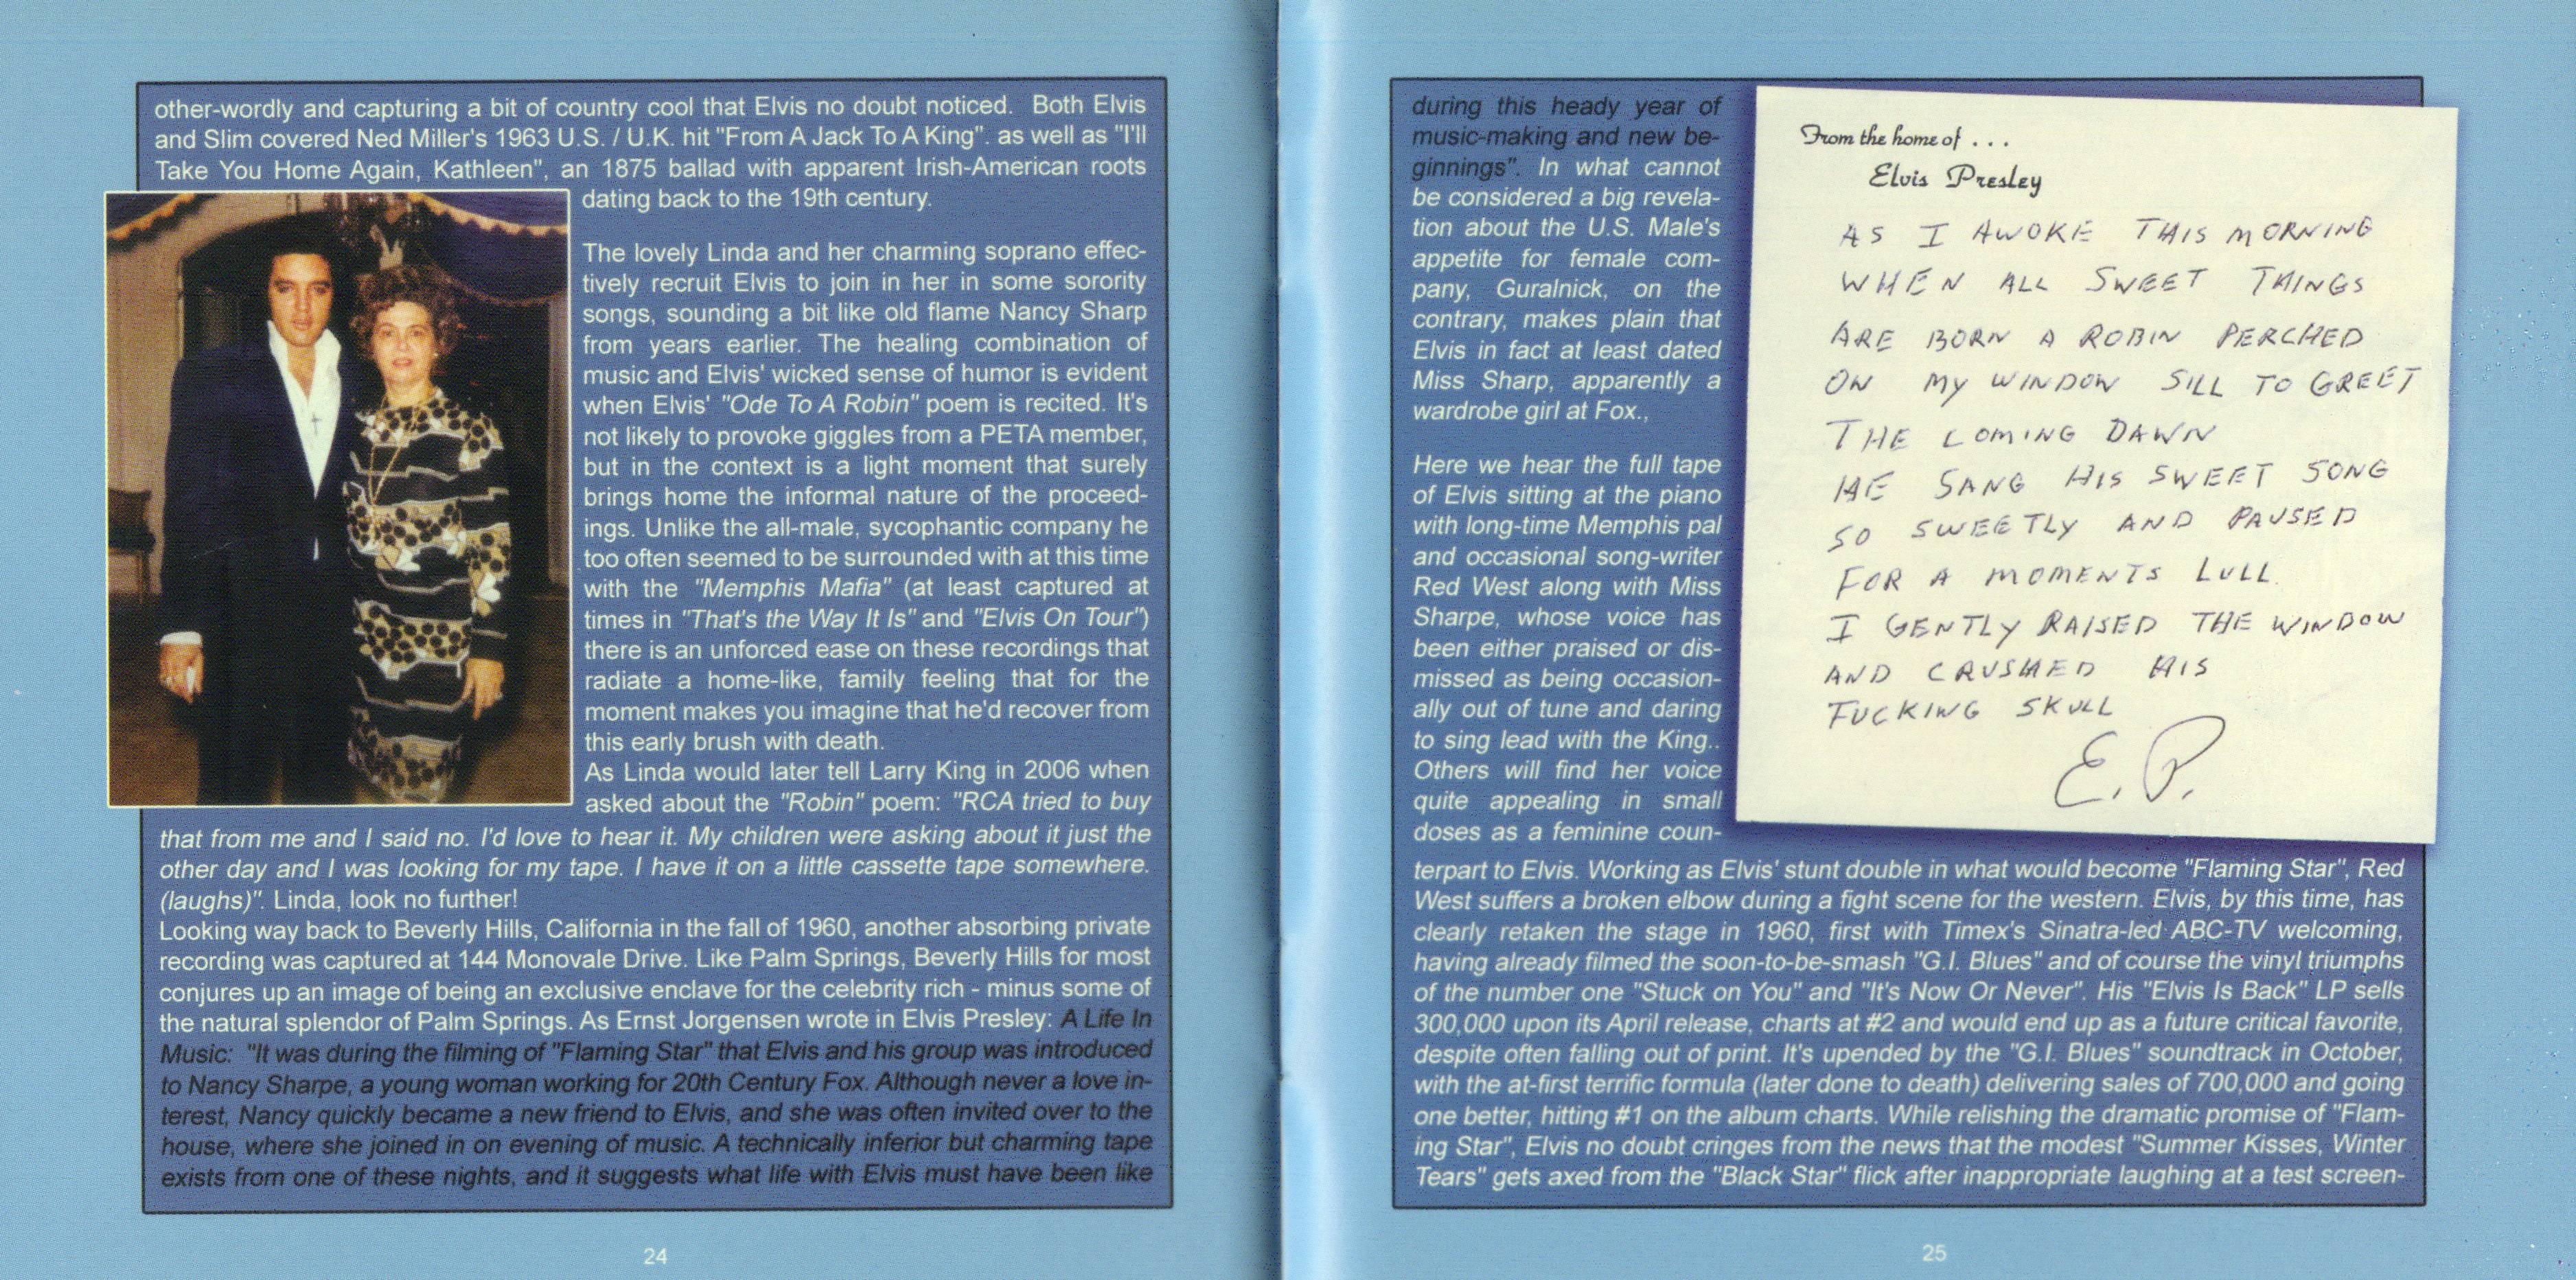 other-wordly and capturing a bit of country cool that Elvis no doubt noticed. Both Elvis
and Slim covered Ned Miller's 1963 U.S. / U.K. hit "From A Jack To A King". as well as "I'll
Take You Home Again, Kathleen", an 1875 ballad with apparent Irish-American roots
dating back to the 19th century.
The lovely Linda and her charming soprano effec-
tively recruit Elvis to join in her in some sorority
songs, sounding a bit like old flame Nancy Sharp
from years earlier. The healing combination of
music and Elvis' wicked sense of humor is evident
when Elvis' "Ode To A Robin" poem is recited. It's
not likely to provoke giggles from a PETA member,
but in the context is a light moment that surely
brings home the informal nature of the proceed-
ings. Unlike the all-male, sycophantic company he
too often seemed to be surrounded with at this time
with the "Memphis Mafia" (at least captured at
times in "That's the Way It Is" and "Elvis On Tour")
there is an unforced ease on these recordings that
radiate a home-like, family feeling that for the
moment makes you imagine that he'd recover from
this early brush with death.
As Linda would later tell Larry King in 2006 when
asked about the "Robin" poem: "RCA tried to buy
that from me and I said no. I'd love to hear it. My children were asking about it just the
other day and I was looking for my tape. I have it on a little cassette tape somewhere.
(laughs)". Linda, look no further!
Looking way back to Beverly Hills, California in the fall of 1960, another absorbing private
recording was captured at 144 Monovale Drive. Like Palm Springs, Beverly Hills for most
conjures up an image of being an exclusive enclave for the celebrity rich - minus some of
the natural splendor of Palm Springs. As Ernst Jorgensen wrote in Elvis Presley: A Life In
Music: "It was during the filming of "Flaming Star" that Elvis and his group was introduced
to Nancy Sharpe, a young woman working for 20th Century Fox. Although never a love in-
terest, Nancy quickly became a new friend to Elvis, and she was often invited over to the
house, where she joined in on evening of music. A technically inferior but charming tape
exists from one of these nights, and it suggests what life with Elvis must have been like
24
during this heady year of
music-making and new be-
ginnings". In what cannot
be considered a big revela-
tion about the U.S. Male's
appetite for female com-
pany, Guralnick, on the
contrary, makes plain that
Elvis in fact at least dated
Miss Sharp, apparently a
wardrobe girl at Fox.,
Here we hear the full tape
of Elvis sitting at the piano
with long-time Memphis pal
and occasional song-writer
Red West along with Miss
Sharpe, whose voice has
been either praised or dis-
missed as being occasion-
ally out of tune and daring
to sing lead with the King..
Others will find her voice
quite appealing in small
doses as a feminine coun-
terpart to Elvis. Working as Elvis' stunt double in what would become "Flaming Star", Red
West suffers a broken elbow during a fight scene for the western. Elvis, by this time, has
clearly retaken the stage in 1960, first with Timex's Sinatra-led ABC-TV welcoming,
having already filmed the soon-to-be-smash "G.I. Blues" and of course the vinyl triumphs
of the number one "Stuck on You" and "It's Now Or Never". His "Elvis Is Back" LP sells
300,000 upon its April release, charts at #2 and would end up as a future critical favorite,
despite often falling out of print. It's upended by the "G.I. Blues" soundtrack in October,
with the at-first terrific formula (later done to death) delivering sales of 700,000 and going
one better, hitting #1 on the album charts. While relishing the dramatic promise of "Flam-
ing Star", Elvis no doubt cringes from the news that the modest "Summer Kisses, Winter
Tears" gets axed from the "Black Star" flick after inappropriate laughing at a test screen-
From the home of . . .
Elvis Presley
AS I AWOKE THIS MORNING
WHEN ALL SWEET THINGS
ARE BORN A ROBIN PERCHED
ON MY WINDOW SILL TO GREET
THE COMING DAWN
HE SANG HIS SWEET SONG
SO SWEETLY AND PAUSED
FOR A MOMENTS LULL
I GENTLY RAISED THE WINDOW
AND CRUSHED HIS
FUCKING SKULL
E.P.
25